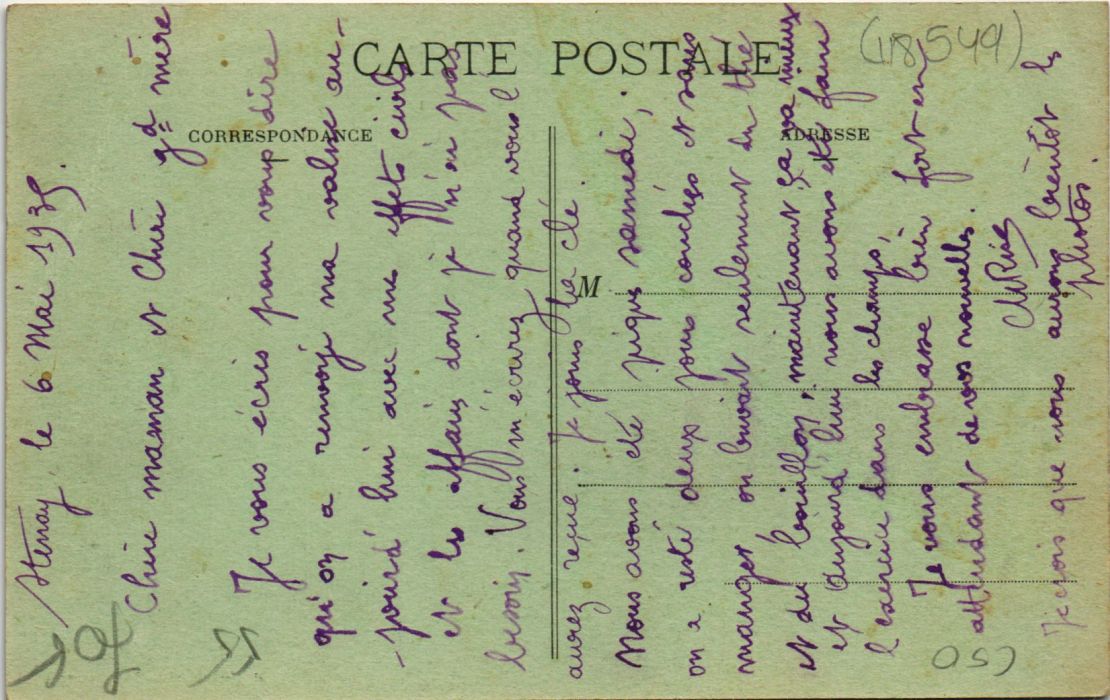 CARTE POSTALE
CORRESPONDANCE
ADRESSE
M
(118,549)
Stenay, le 6 Mai 1935.
Chère maman et Chère gd mère
Je vous écris pour vous dire
qu'on a renvoyé ma valise au-
-jourd'hui avec mes effets civils
et les affaires dont je n'ai pas
besoin. Vous m'écrirez quand vous l'
aurez reçue. Je joins la clé.
Nous avons été piqués samedi,
on a resté deux jours couchés et sans
manger on buvait seulement du thé
et du bouillon, maintenant ça va mieux
et aujourd'hui nous avons été faire
l'exercice dans les champs,
Je vous embrasse bien fort en
attendant de vos nouvelles.
Je crois que nous aurons bientôt les
photos